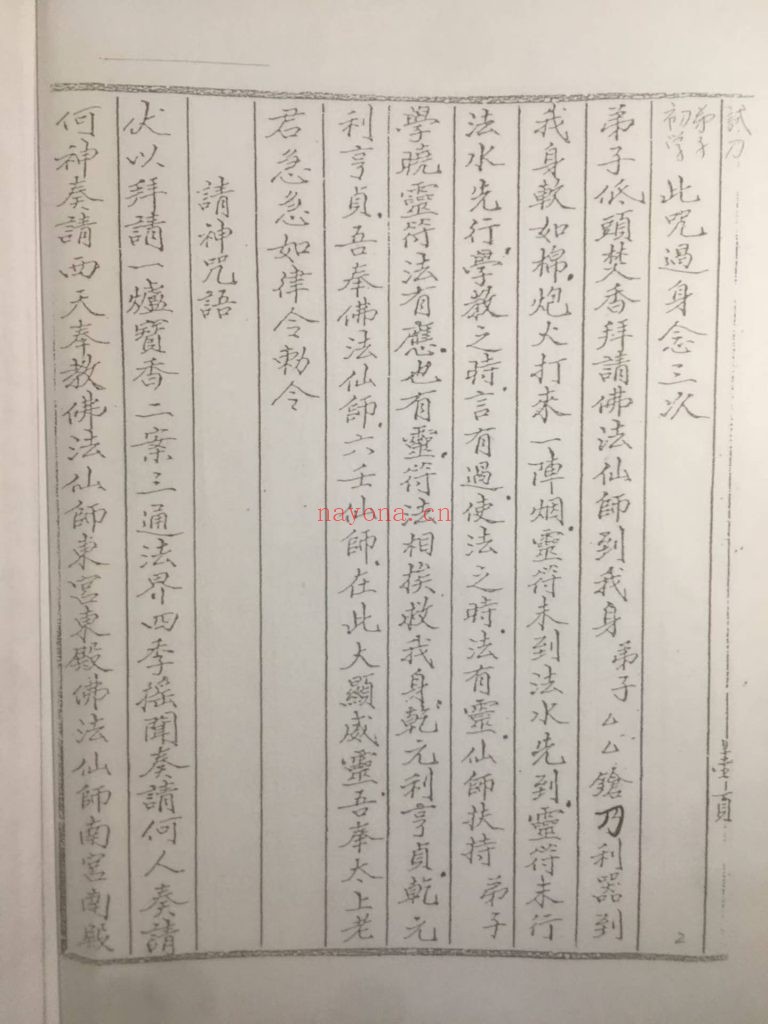 試刀
弟子初学 此咒過身念三次
弟子低頭焚香拜請佛法仙師到我身弟子厶厶鎗刀利器到
我身軟如棉炮火打來一陣烟靈符未到法水先到靈符未行
法水先行學教之時言有過使法之時法有靈仙師扶持弟子
學曉靈符法有應也有靈符法相挨救我身乾元利亨貞乾元
利亨貞吾奉佛法仙師六壬仙師在此大顯威靈吾奉太上老
君急急如律令勅令
請神咒語
伏以拜請一爐寶香二案三通法界四季摇聞奏請何人奏請
何神奏請西天奉教佛法仙師東宮東殿佛法仙師南宮南殿
壹頁
2
nayona.cn